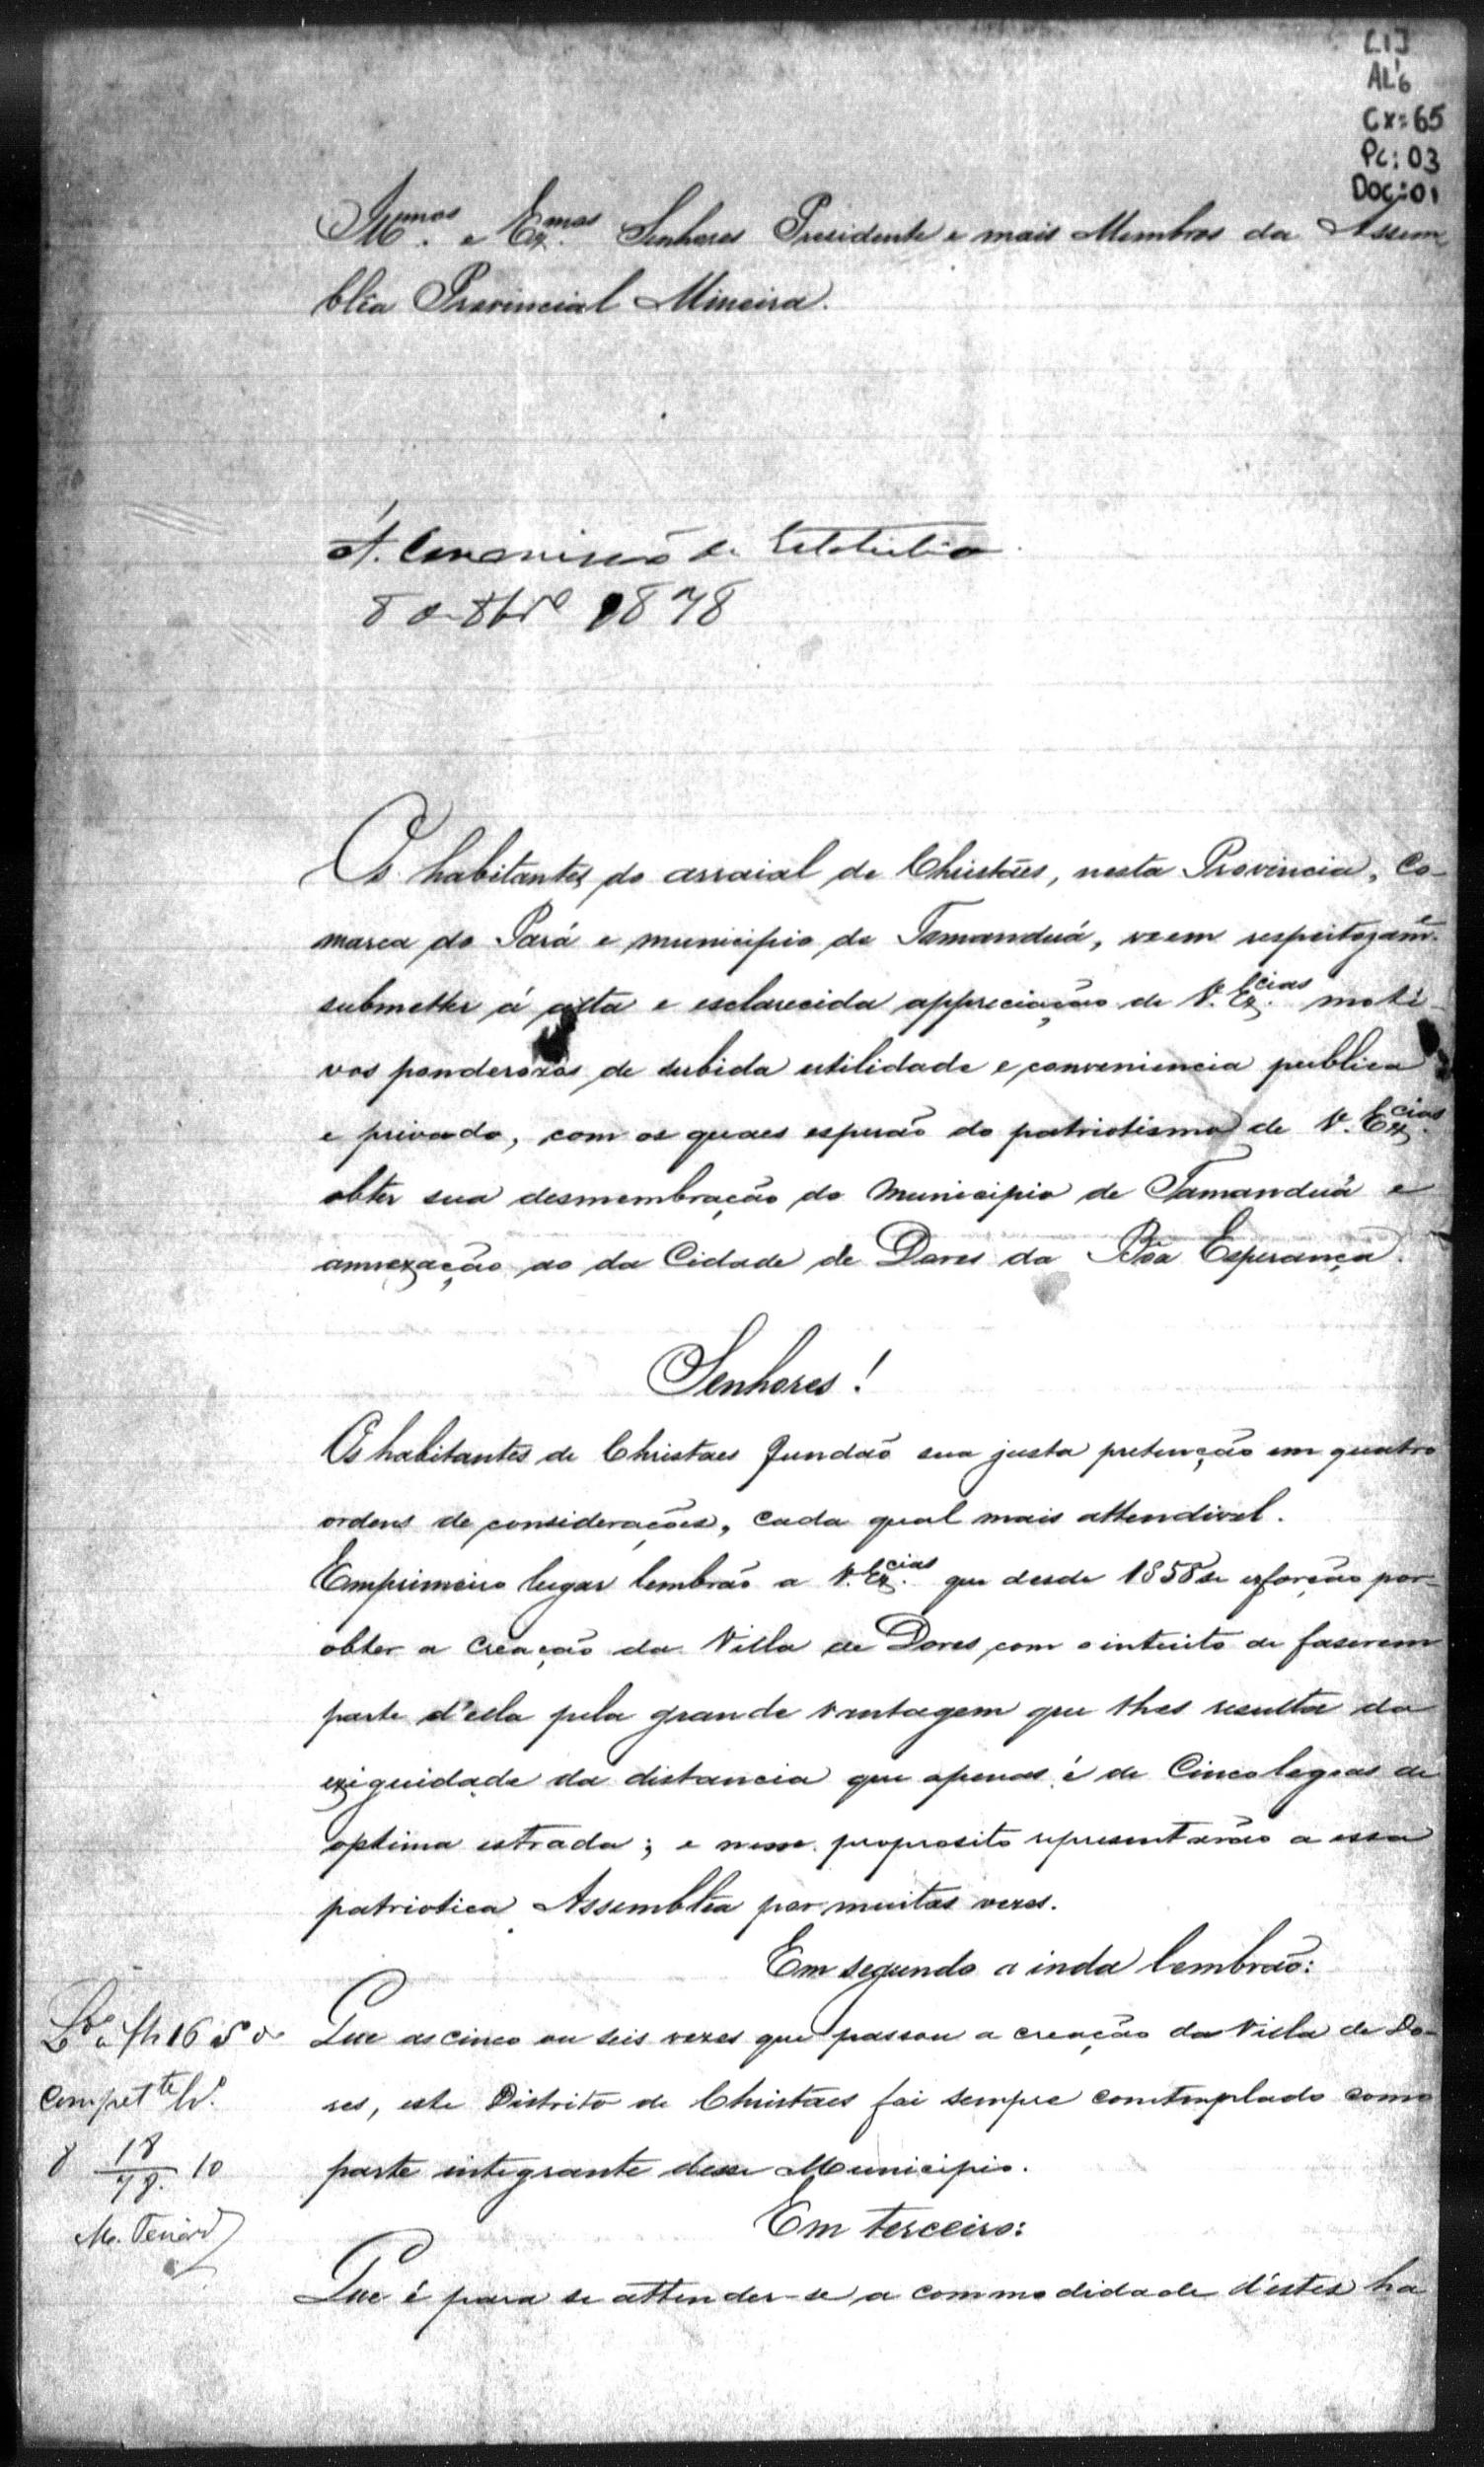 [1]
AL'6
Cx: 65
Pc: 03
Doc: 01
Illmos. e Exmos. Senhores Presidente e mais Membros da Assem
bléa Provincial Mineira.
Á Commissão de Estatistica
8 8bro 1878
Os habitantes do arraial de Christães, nesta Provincia, Co-
marca do Pará e municipio de Tamanduá, veem respeitozame.
submetter á alta e esclarecida appreciação de V. Excias. moti-
vos ponderozos de subida utilidade e conveniencia publica
e privada, com os quaes esperão do patriotismo de V. Excias.
obter sua desmembração do Municipio de Tamanduá e
annexação ao da Cidade de Dores da Bôa Esperança.
Senhores!
Os habitantes de Christaes fundão sua justa pretenção em quatro
ordens de considerações, cada qual mais attendivel.
Emprimeiro lugar lembrão a V. Excias. que desde 1858 se esforção por
obter a creação da Villa de Dores, com o intuito de faserem
parte d'ella pela grande vantagem que lhes resulta da
exiguidade da distancia que apenas é de Cinco legoas de
optima estrada; e nesse proposito representárão a essa
patriotica Assembléa por muitas vezes.
Em segundo ainda lembrão:
Que as cinco ou seis vezes que passou a creação da Villa de Do-
res, este Distrito de Christaes foi sempre comtemplado como
parte integrante desse Municipio.
Em terceiro:
Que é para se attender-se a commodidade d'estes ha
Lo. a fh 165 do
Compette Lo.
8 18/78. 10
M.